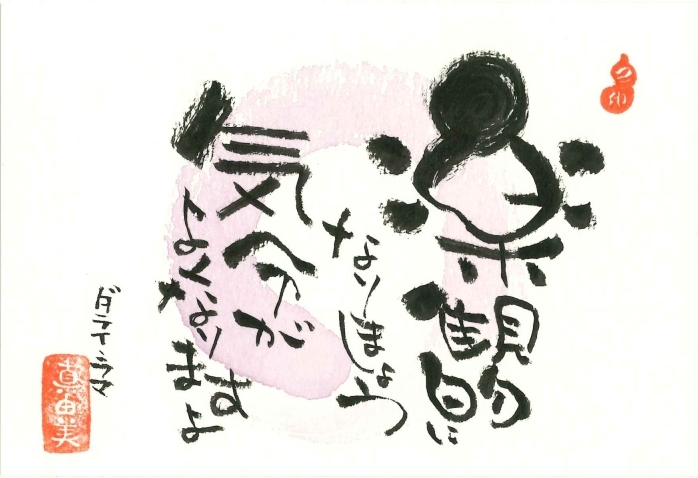 楽観的に
なりましょう
気分が
よくなりますよ
ダライ・ラマ
真由美